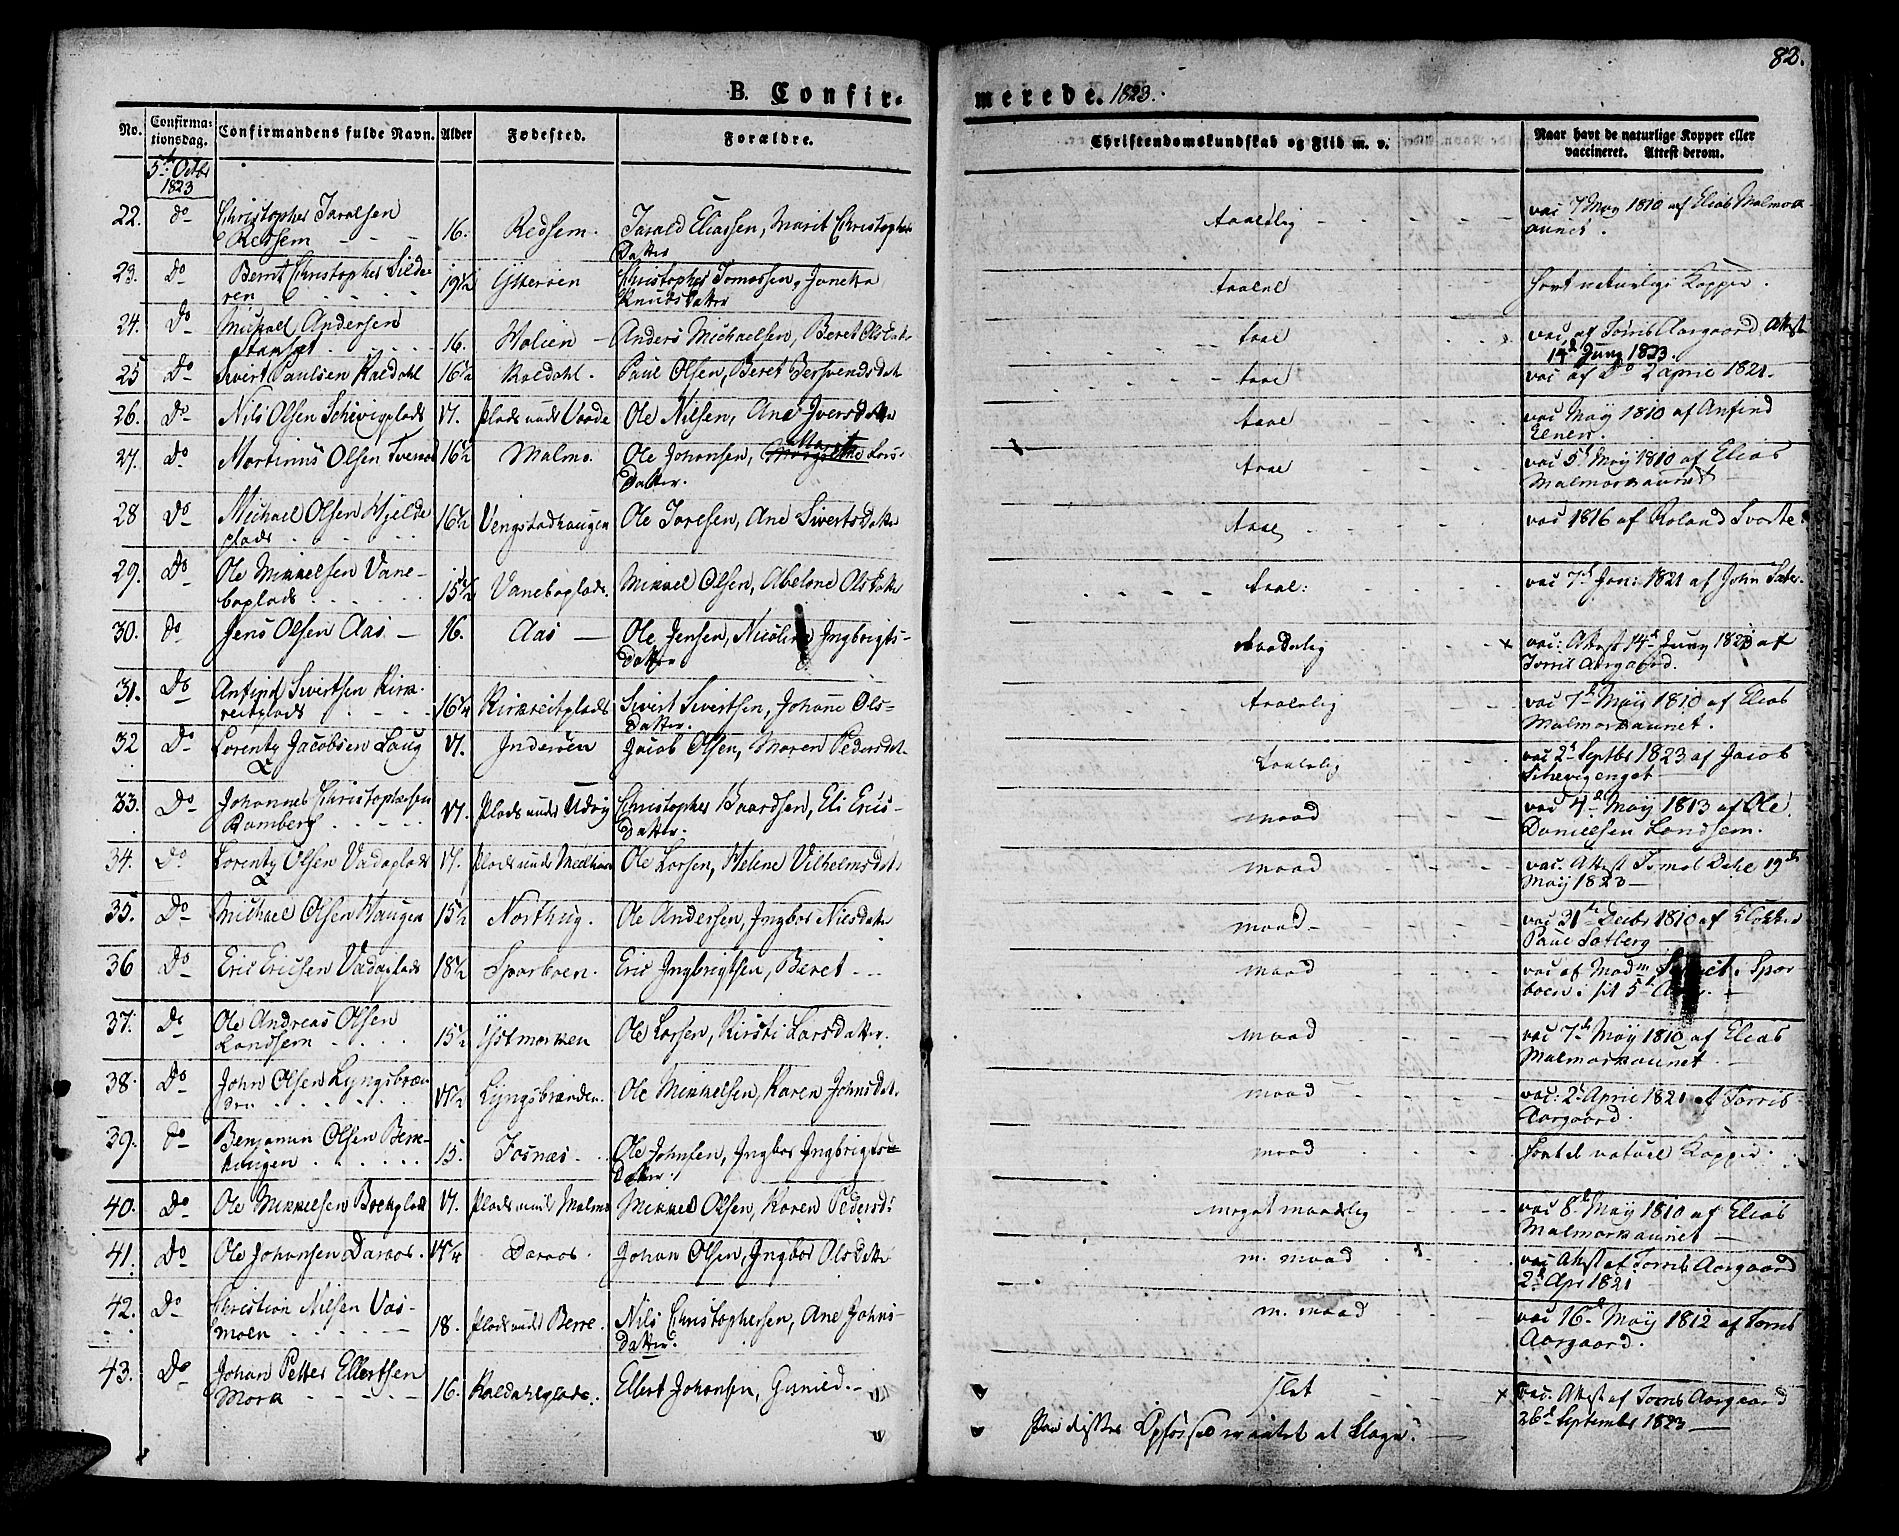 82.
B. Confir-
merede. 1823.
No.
Confirma-
tionsdag.
Confirmandens fulde Navn.
Alder
Fødested.
Forældre.
Christendomskundskab og Flid m. v.
Naar havt de naturlige Kopper eller
vaccineret. Attest derom.
5te Octbr
1823
22. do Christopher Taralsen
Redsem 16. Redsem. Tarald Eliassen, Marit Christopher
Datter taaldlig vac 7 May 1810 af Elias Malmork
aunet.
23. Do Bernt Christopher Silde
ren 19 1/2 Ytterøen Christopher Tomassen, Janetta
Knudsdatter taalel havt naturlige Kopper.
24. Do Michael Andersen
16. Anders Michaelsen, Beret Olsdatr taael vac, af Torris Aargaard. Attest
14d Juny 1823.
25 Do Sivert Paulsen Kaldahl 16 1/2 Kaldahl. Paul Olsen, Beret Sersvendsdat taael vac af Do 2 april 1821.
26. Do Nils Olsen Schevigplads 17. Plads und Vaade Ole Nilsen, Ane Iversdatter taael vac May 1810 af Anfind
Elnes.
27. Do Martinus Olsen Tvena 16 1/2 Malmo. Ole Johansen, Marit Lars-
Datter. taael vac 5d May 1810 af Elias
Malmorkaunet
28 Do Michael Olsen Hjelde
plads 16 1/2 Vengstadhaugen Ole Toresen, Ane Siverts Datter taael vac 1816 af Roland Svarte
29. Do Ole Mikkelsen Vane-
boplads 15 1/2 Vaneboplads. Mikkel Olsen, Abelone Olsdatter taael: vac 7d Jan: 1821 af John Sater
30. do Jens Olsen Aas 16. Aas Ole Jensen, Nicoline Ingbrigts-
Datter taadelig × vac: Attest 14d Juny 1823 af
Torris Aargaard.
31. Do Anfind Sivertsen Kirk
reitplads 16 1/4 Kirkreitplads Sivert Sivertsen, Johane Ols-
Datter. taalelig vac 7d May 1810 af Elias
Malmorkaunet.
32 Do Lorentz Jacobsen Laug 17. Inderøen Jacob Olsen, Maren Pedersdat taalelig vac 2d Septbr 1823 af Jacob
Schevigenget
33. Do Johannes Christophersen
Ramberg 17. Plads und Udvig Christopher Baardsen, Eli Erics-
Datter. maad vac 4d May 1813 af Ole
Danielsen Landsem.
34. Do Lorentz Olsen Vadaplads 17. Plads und Medhaa Ole Larsen, Helene Vilhelmsdat maad vac. Attest Tomas Dahl 19d
May 1823
35. Do Michael Olsen Haugen 15 1/2 Northug. Ole Andersen, Ingbor Nilsdatter maad vac 21d Decbr 1810 af Klokker
Paul Satberg
36 Do Eric Ericsen Vadaplads 18 1/2 Sparboen. Eric Ingbrigtsen, Beret maad vac af Madm i Spar
boen i sit 5d Aar.
37. Do Ole Andreas Olsen
Landsem 15 1/2 Østmarken Ole Larsen, Kirsti Larsdatter. maad vac 7d May 1810 af Elias
Malmorkaunet
38. Do John Olsen Lyngsbræn
den 17 1/2 Lyngsbrænden. Ole Mikkelsen, Karen Johnsdat. maad vac: 2d April 1821 af Torris
Aargaard.
39. do Benjamin Olsen Berre-
haugen 15. Fosnæs Ole Johnsen, Ingbor Ingbrigts
Datter. maad havt d naturl Kopper.
40. Do Ole Mikkelsen Borkplads 17. Plads und Malmo Mikkel Olsen, Karen Pedersd: meget maadelig vac 8d May 1810 af Elias
Malmorkaunet
41. Do Ole Johansen Daraas. 17 1/4 Daraas. Johan Olsen, Ingbor Olsdatter m. maad vac Attest af Torris Aargaard
2d Apr 1821
42. Do Christian Nilsen Vas-
moen 18. Plads und Berre. Nils Christophersen, Ane Johns-
datter. m. maad vac 16d May 1812 af Torris
Aargaard.
43. Do Johan Petter Ellertsen
Mork 16. Kaldahlplads. Ellert Johansen, Gunild. slet × vac. Attest af Torris Aargaard
26d September 1823
Paa dettes Opførsel er intet at klage.